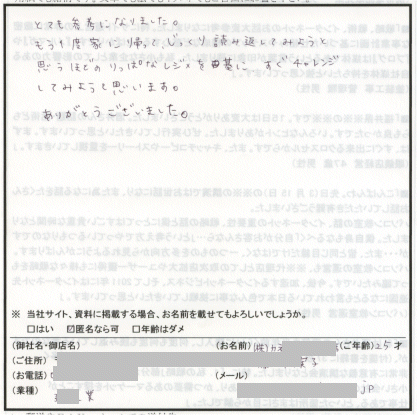 とても参考になりました。
もう1度家に帰って、じっくり読み返してみようと
思うほどのりっぱなレジメを由基に、すぐチャレンジ
してみようと思います。
ありがとうございました。
※ 当社サイト、資料に掲載する場合、お名前を載せてもよろしいでしょうか。
□はい ☑匿名なら可 □年齢はダメ
(御社名・御店名) (お名前) (ご年齢)25才
(ご住所)
(お電話) (メール)
(業種) 業 jp